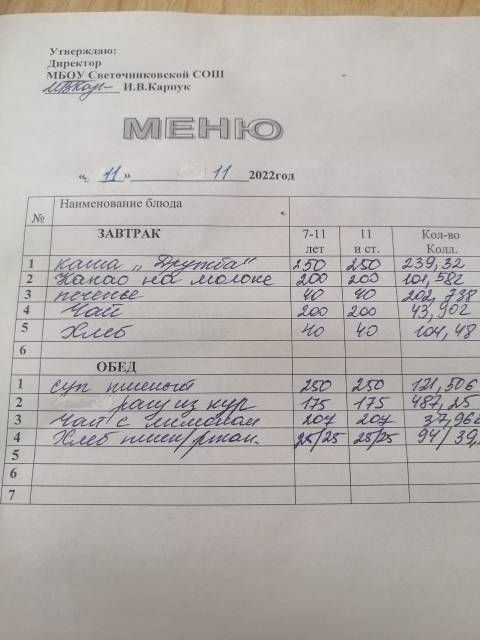 Утверждаю:
Директор
МБОУ Светочниковской СОШ
И.В.Карпук
МЕНЮ
« 11 » 11 2022год
№ Наименование блюда
ЗАВТРАК 7-11 лет 11 и ст. Кол-во Колл.
1 каша „Дружба" 250 250 239,32
2 Какао на молоке 200 200 101,582
3 печенье 40 40 202,738
4 Чай 200 200 43,902
5 Хлеб 40 40 104,48
6
ОБЕД
1 суп 250 250 121,506
2 рагу из кур 175 175 487,25
3 Чай с лимоном 207 207 37,962
4 Хлеб пшен/ржан. 25/25 25/25 94/39,
5
6
7